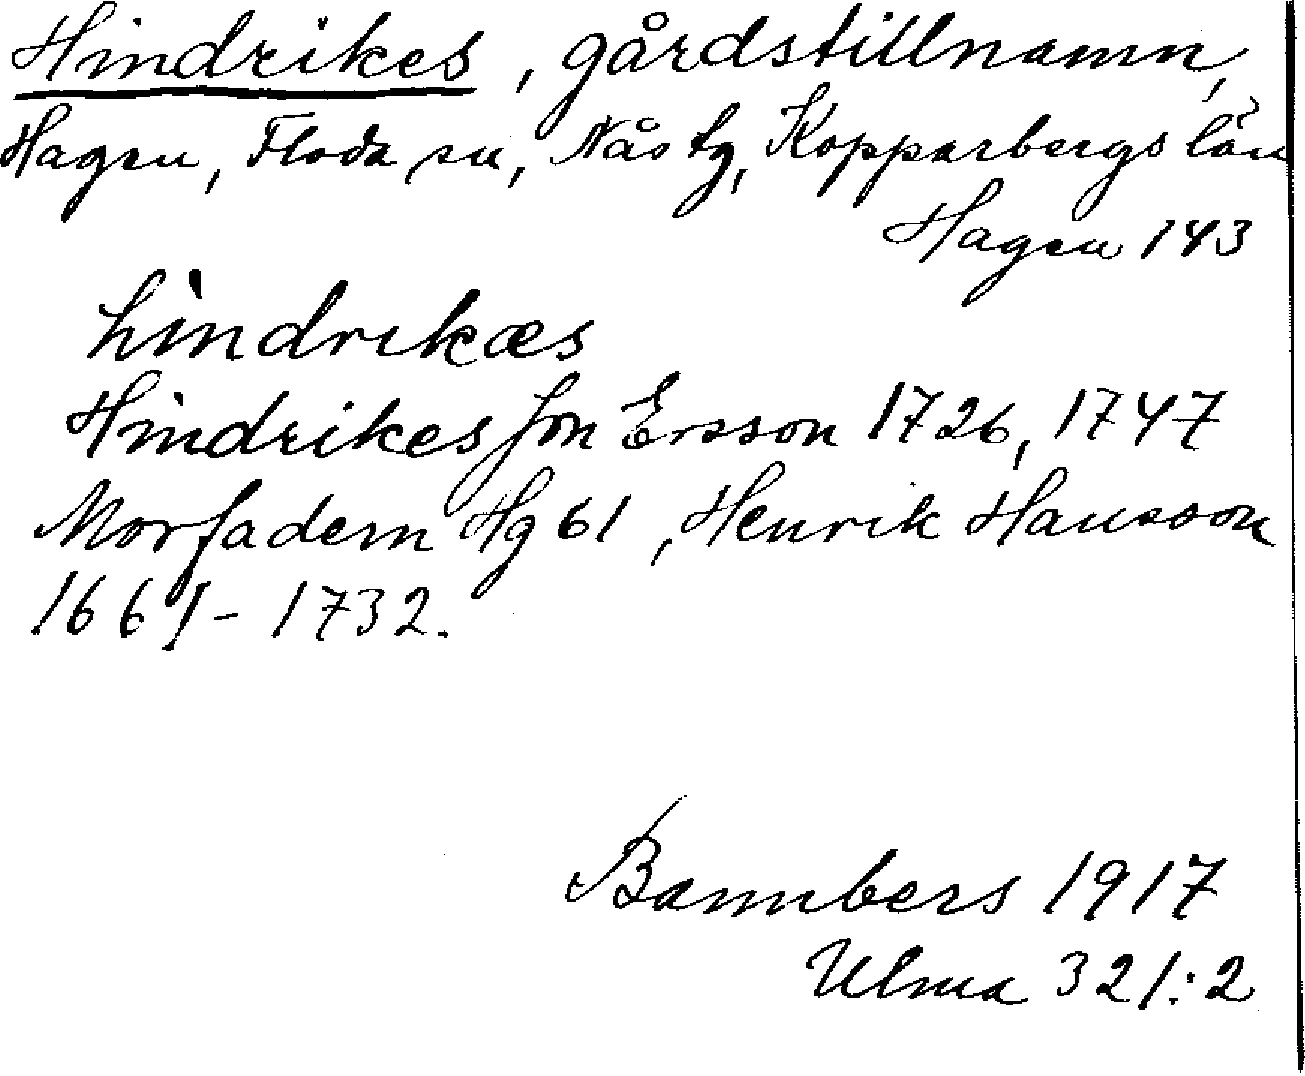 Hindrikes, gårdstillnamn,
Hagen, Floda sn, Nås tg, Kopparbergs län
Hagen 143
hindrikæs
Hindrikes Jon Ersson 1726, 1747
Morfadern Hg 61, Henrik Hansson
1661-1732.
Bannbers 1917
Ulma 321:2